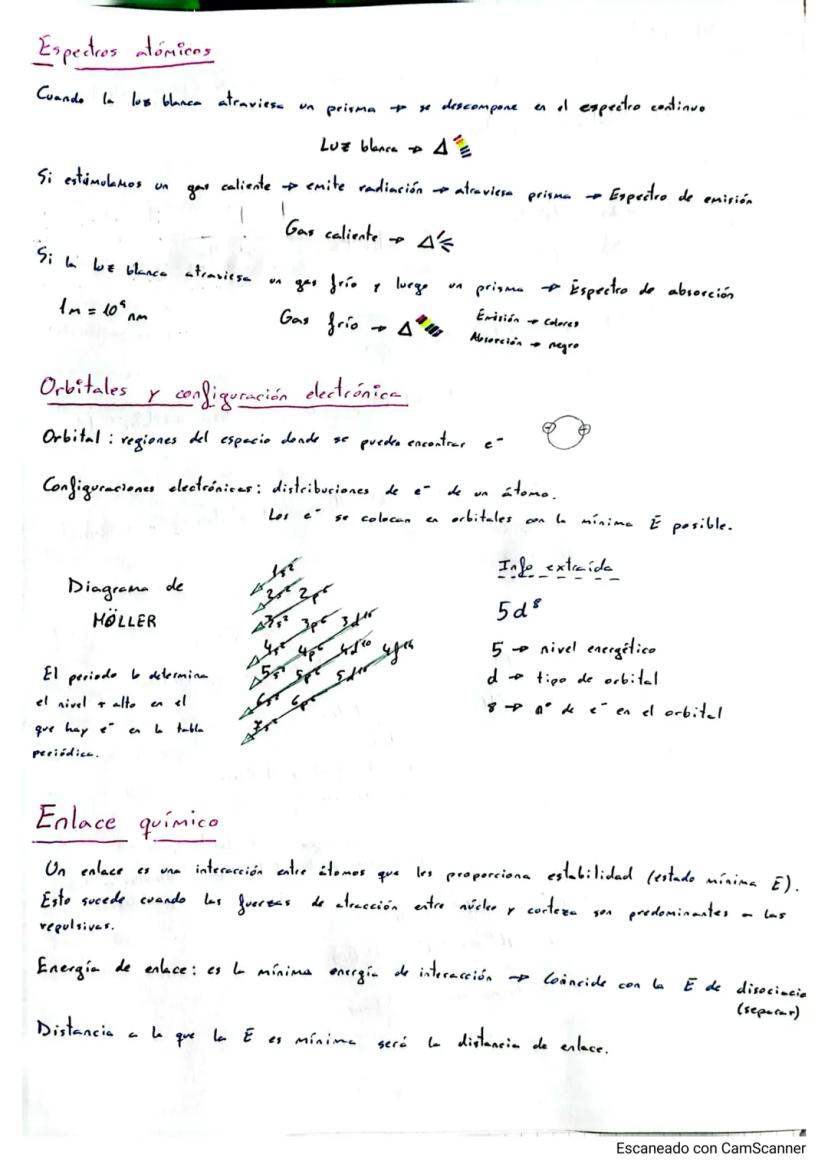 Espectros atómicos
Cuando la luz blanca atraviesa un prisma → se descompone en el espectro continuo
Luz blanca → Δ
Si estimulamos un gas caliente → emite radiación → atraviesa prisma → Espectro de emisión
Gas caliente → Δ
Si la luz blanca atraviesa un gas frío y luego un prisma → Espectro de absorción
1m = 10⁹ nm
Gas frío → Δ
Emisión → colores
Absorción → negro
Orbitales y configuración electrónica
Orbital : regiones del espacio donde se pueden encontrar e⁻
Configuraciones electrónicas : distribuciones de e⁻ de un átomo.
Los e⁻ se colocan en orbitales con la mínima E posible.
Diagrama de
MÖLLER
1s²
2s² 2p⁶
3s² 3p⁶ 3d¹⁰
4s² 4p⁶ 4d¹⁰ 4f¹⁴
5s² 5p⁶ 5d¹⁰
6s² 6p⁶
7s²
El periodo lo determina
el nivel + alto en el
que hay e⁻ en la tabla
periódica.
Info extraída
5d⁸
5 → nivel energético
d → tipo de orbital
8 → nº de e⁻ en el orbital
Enlace químico
Un enlace es una interacción entre átomos que les proporciona estabilidad (estado mínima E).
Esto sucede cuando las fuerzas de atracción entre núcleo y corteza son predominantes a las
repulsivas.
Energía de enlace : es la mínima energía de interacción → Coincide con la E de disociacio
(separar)
Distancia a la que la E es mínima será la distancia de enlace.
Escaneado con CamScanner